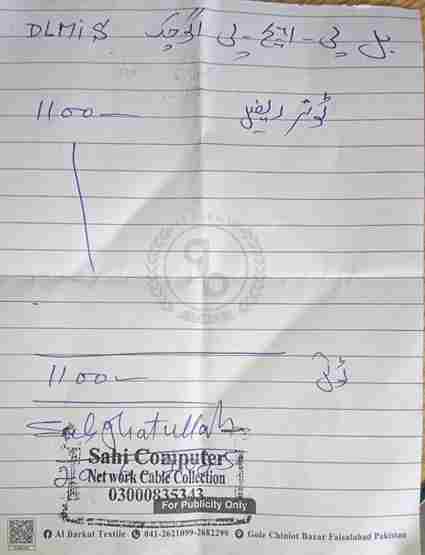 بل پی - ایچ - پی ائرجیک DLMiS
ٹونر ریفل 1100
ٹوٹل 1100
Sabghatullah
Sahi Computer
Network Cable Collection
03000835343
For Publicity Only
Al Barkat Textile 041-2621099-2682290 Gole Chiniot Bazar Faisalabad Pakistan